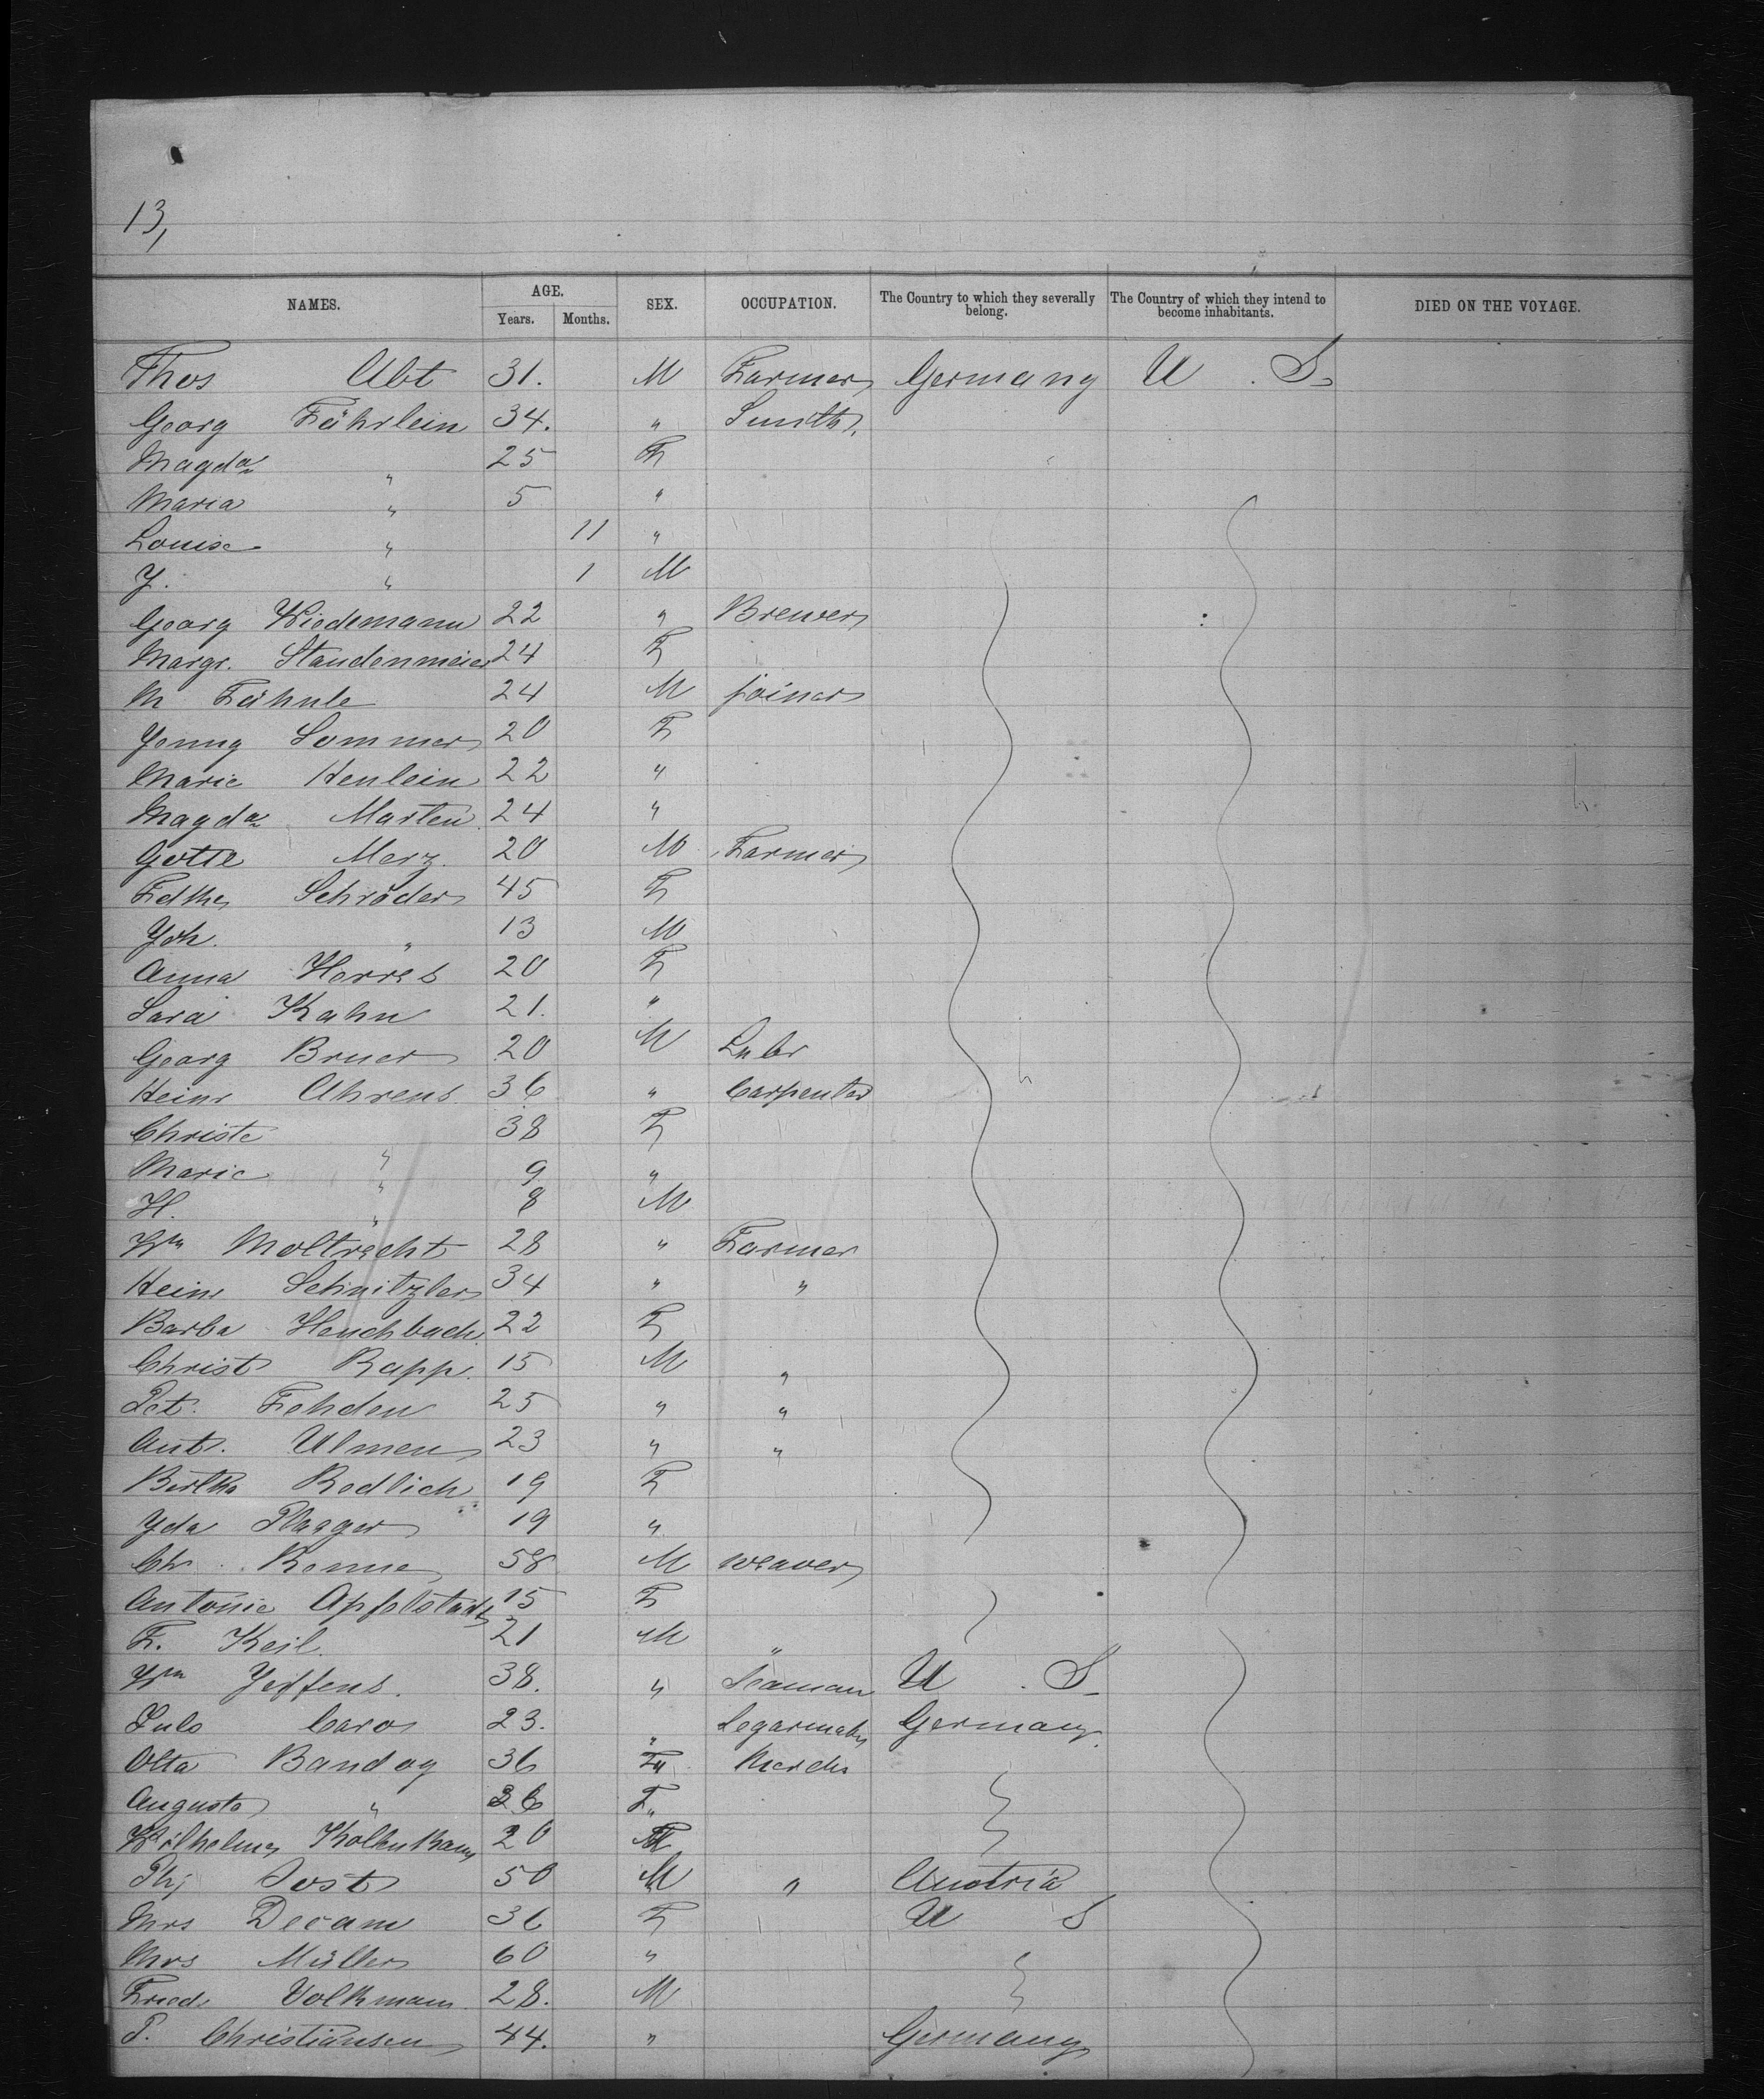 13,
NAMES. AGE. SEX. OCCUPATION. The Country to which they severally belong. The Country of which they intend to become inhabitants. DIED ON THE VOYAGE.
Years. Months.
Thos Abt 31. M Farmer Germany U. S.
Georg Fährlein 34. " Smith
Magda " 25 F
Maria " 5 "
Louise " 11 "
Y. " 1 M
Georg Wiedemann 22 " Brewer
Margr. Staudenmeier 24 F
M Fähnle 24 M joiner
Jenny Sommer 20 F
Marie Henlein 22 "
Magda Martin 24 "
Merz. 20 M Farmer
Schröder 45 F
Joh. " 13 M
Anna Horres 20 F
Sara Kahn 21. "
Georg Bruer 20 M Labr
Heinr Ahrens 36 " Carpenter
Christe " 38 F
Marie " 9 "
H. " 8 M
Wm Moltrecht 28 " Farmer
Heinr Schnitzler 34 " "
Barba 22 F
Christ Rapp. 15 M "
Pet. Fehden 25 " "
Ant. Ulmen 23 " "
Bertha Redlich 19 F
Yda Plagger 19 "
Ch. 58 M weaver
Antonie Apfelstadt 15 F
F. Keil. 21 M "
Wm 38. " Seaman U. S.
Caro 23. " Germany.
Bandog 36
Augusta " 26 F
20
Jost 50 M " Austria
Mrs Decam 36 F U S
Mrs Müller 60 "
Fried. Volkmann 28. M
P. Christiansen 44. " Germany